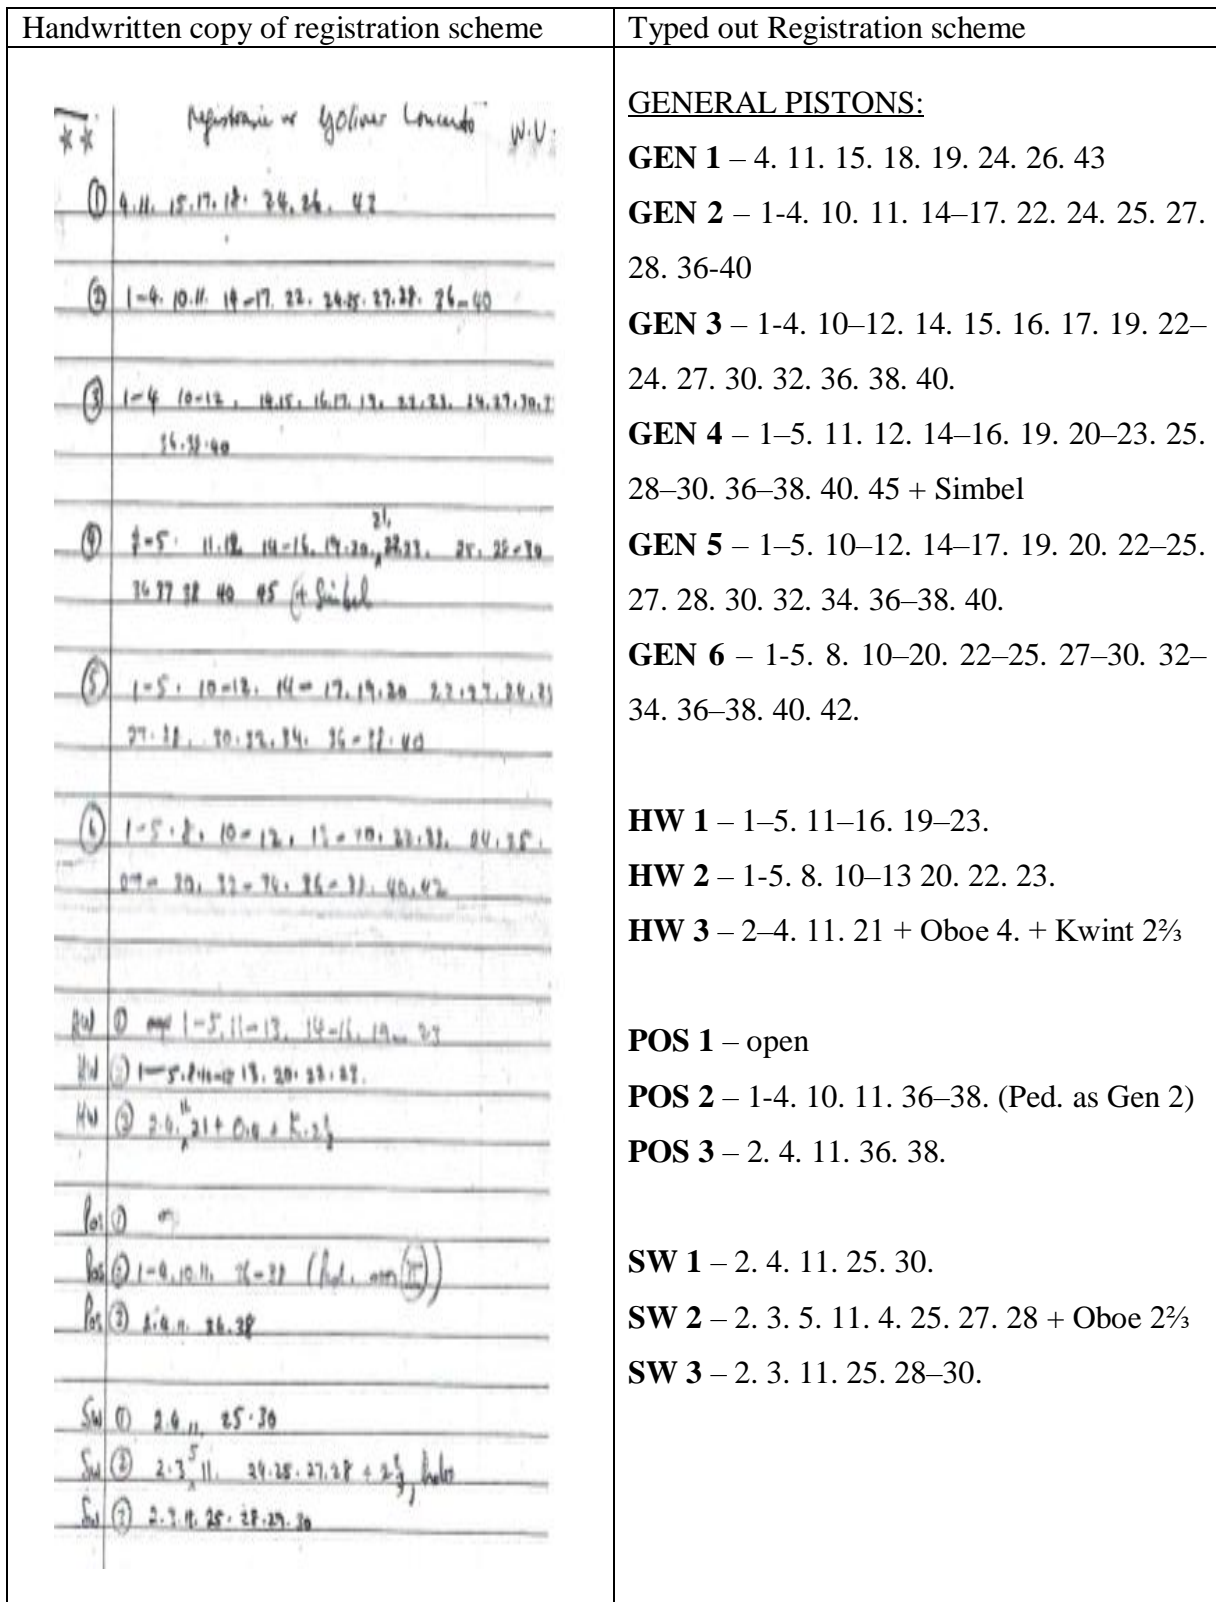 Handwritten copy of registration scheme
Typed out Registration scheme
** Registrasie vir Concerto W.V.
① 4.11. 15.17.18. 24.26. 43
② 1-4. 10.11. 14-17. 22. 24.25. 27.28. 36-40
③ 1-4 10-12. 14.15. 16.17. 19. 22.23. 24.27.30.
36.38.40
④ -5. 11.12. 14-16. 19.20. 21. 22.23. 25. 28-30
36 37 38 40 45 (+ Simbel
⑤ 1-5. 10-12. 14-17.19.20 22.23.24.25
27.28. 30.32.34. 36-38.40
⑥ 1-5.8. 10-12. 13-20. 22.23. 24.25.
27-30. 32-34. 36-38. 40.42
HW ① 1-5.11-13. 14-16. 19-23
HW ② 1-5.8.10-12 13. 20. 22.23.
HW ③ 2.4. 11 21 + O.4 + K.2⅔
Pos ①
Pos ② 1-4.10.11. 36-38 (Ped. (II))
Pos ③ 2.4.11. 36.38
Sw ① 2.4.11. 25.30
Sw ② 2.3.5 11. 24.25.27.28 + 2⅔
Sw ③ 2.3.11.25.28.29.30
GENERAL PISTONS:
GEN 1 – 4. 11. 15. 18. 19. 24. 26. 43
GEN 2 – 1-4. 10. 11. 14–17. 22. 24. 25. 27.
28. 36-40
GEN 3 – 1-4. 10–12. 14. 15. 16. 17. 19. 22–
24. 27. 30. 32. 36. 38. 40.
GEN 4 – 1–5. 11. 12. 14–16. 19. 20–23. 25.
28–30. 36–38. 40. 45 + Simbel
GEN 5 – 1–5. 10–12. 14–17. 19. 20. 22–25.
27. 28. 30. 32. 34. 36–38. 40.
GEN 6 – 1-5. 8. 10–20. 22–25. 27–30. 32–
34. 36–38. 40. 42.
HW 1 – 1–5. 11–16. 19–23.
HW 2 – 1-5. 8. 10–13 20. 22. 23.
HW 3 – 2–4. 11. 21 + Oboe 4. + Kwint 2⅔
POS 1 – open
POS 2 – 1-4. 10. 11. 36–38. (Ped. as Gen 2)
POS 3 – 2. 4. 11. 36. 38.
SW 1 – 2. 4. 11. 25. 30.
SW 2 – 2. 3. 5. 11. 4. 25. 27. 28 + Oboe 2⅔
SW 3 – 2. 3. 11. 25. 28–30.